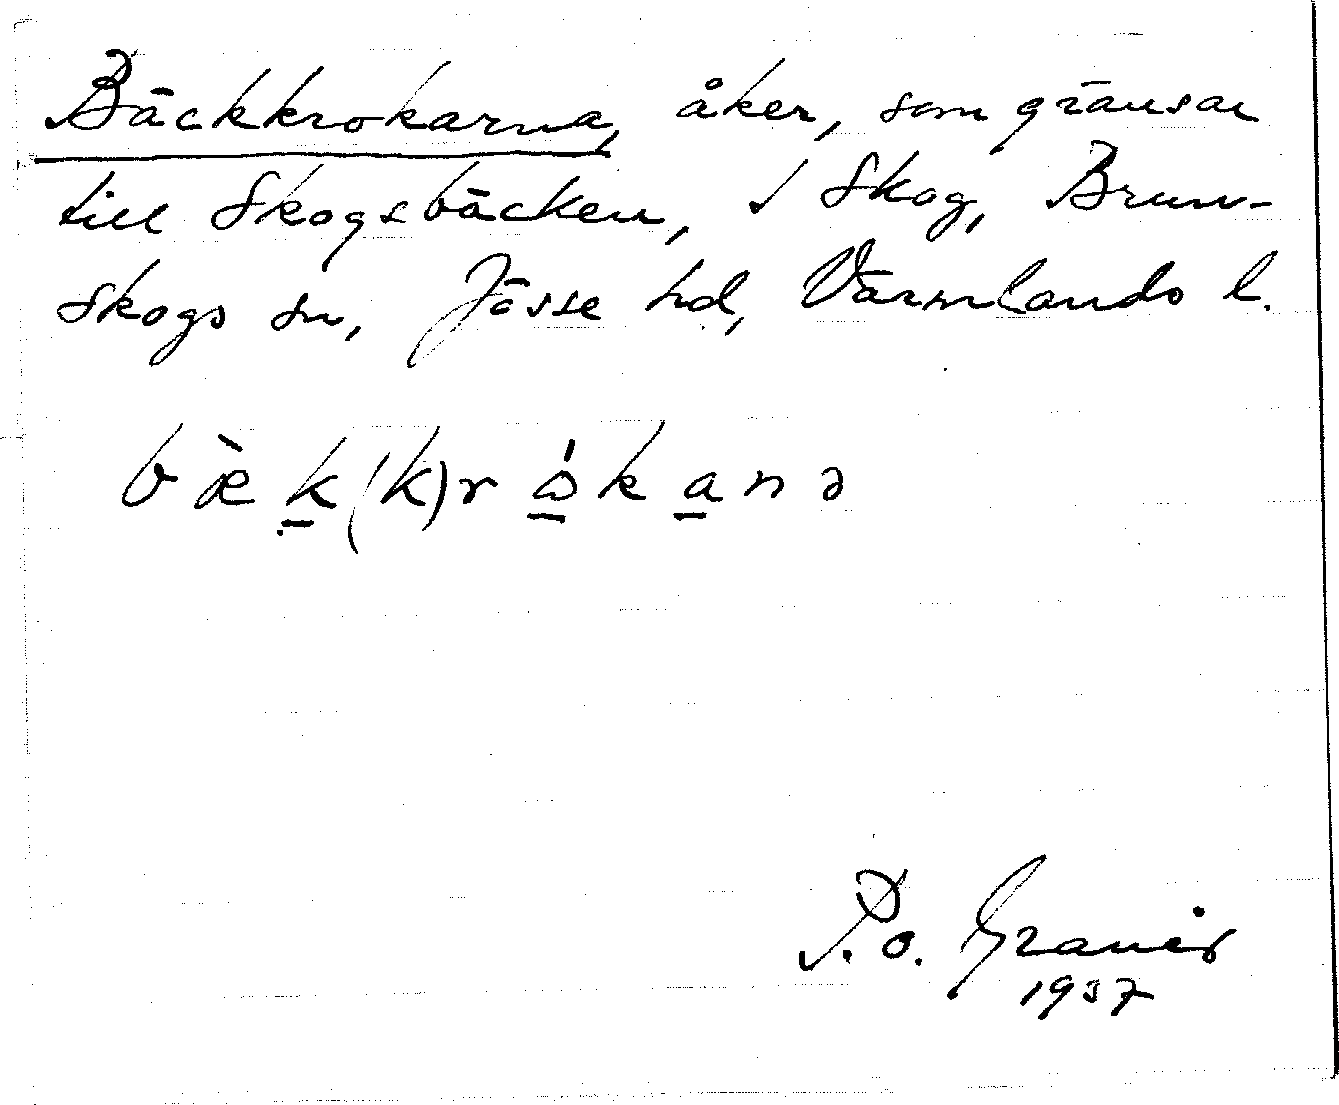 Bäckkrokarna, åker, som gränsar
till Skogsbäcken, i Skog, Brun-
skogs sn, Jösse hd, Värmlands l.
bæ̀k̠(k)rɷ̠́ka̠nə
P. O. Graner
1937